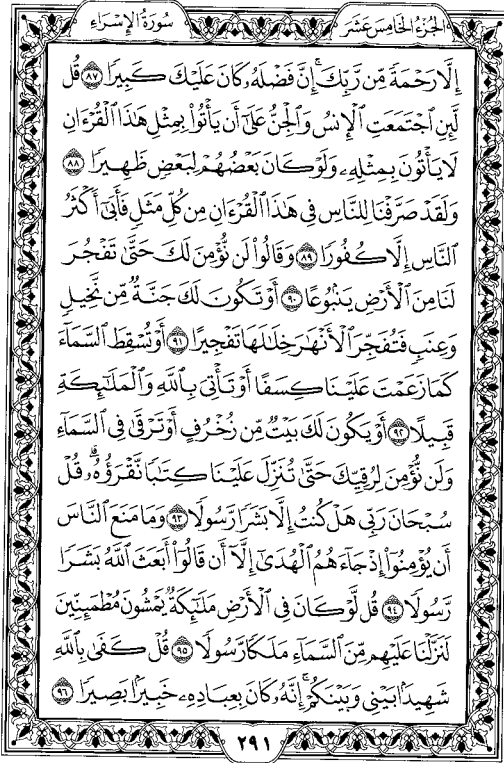 سُورَةُ الإِسْرَاءِ
الجُزْءُ الخَامِسَ عَشَرَ
إِلَّا رَحْمَةً مِّن رَّبِّكَ ۚ إِنَّ فَضْلَهُۥ كَانَ عَلَيْكَ كَبِيرًا ٨٧ قُل
لَّئِنِ ٱجْتَمَعَتِ ٱلْإِنسُ وَٱلْجِنُّ عَلَىٰٓ أَن يَأْتُوا۟ بِمِثْلِ هَٰذَا ٱلْقُرْءَانِ
لَا يَأْتُونَ بِمِثْلِهِۦ وَلَوْ كَانَ بَعْضُهُمْ لِبَعْضٍ ظَهِيرًا ٨٨
وَلَقَدْ صَرَّفْنَا لِلنَّاسِ فِى هَٰذَا ٱلْقُرْءَانِ مِن كُلِّ مَثَلٍ فَأَبَىٰٓ أَكْثَرُ
ٱلنَّاسِ إِلَّا كُفُورًا ٨٩ وَقَالُوا۟ لَن نُّؤْمِنَ لَكَ حَتَّىٰ تَفْجُرَ
لَنَا مِنَ ٱلْأَرْضِ يَنۢبُوعًا ٩٠ أَوْ تَكُونَ لَكَ جَنَّةٌ مِّن نَّخِيلٍ
وَعِنَبٍ فَتُفَجِّرَ ٱلْأَنْهَٰرَ خِلَٰلَهَا تَفْجِيرًا ٩١ أَوْ تُسْقِطَ ٱلسَّمَآءَ
كَمَا زَعَمْتَ عَلَيْنَا كِسَفًا أَوْ تَأْتِىَ بِٱللَّهِ وَٱلْمَلَٰٓئِكَةِ
قَبِيلًا ٩٢ أَوْ يَكُونَ لَكَ بَيْتٌ مِّن زُخْرُفٍ أَوْ تَرْقَىٰ فِى ٱلسَّمَآءِ
وَلَن نُّؤْمِنَ لِرُقِيِّكَ حَتَّىٰ تُنَزِّلَ عَلَيْنَا كِتَٰبًا نَّقْرَؤُهُۥ ۗ قُلْ
سُبْحَانَ رَبِّى هَلْ كُنتُ إِلَّا بَشَرًا رَّسُولًا ٩٣ وَمَا مَنَعَ ٱلنَّاسَ
أَن يُؤْمِنُوٓا۟ إِذْ جَآءَهُمُ ٱلْهُدَىٰٓ إِلَّآ أَن قَالُوٓا۟ أَبَعَثَ ٱللَّهُ بَشَرًا
رَّسُولًا ٩٤ قُل لَّوْ كَانَ فِى ٱلْأَرْضِ مَلَٰٓئِكَةٌ يَمْشُونَ مُطْمَئِنِّينَ
لَنَزَّلْنَا عَلَيْهِم مِّنَ ٱلسَّمَآءِ مَلَكًا رَّسُولًا ٩٥ قُلْ كَفَىٰ بِٱللَّهِ
شَهِيدًۢا بَيْنِى وَبَيْنَكُمْ ۚ إِنَّهُۥ كَانَ بِعِبَادِهِۦ خَبِيرًۢا بَصِيرًا ٩٦
٢٩١